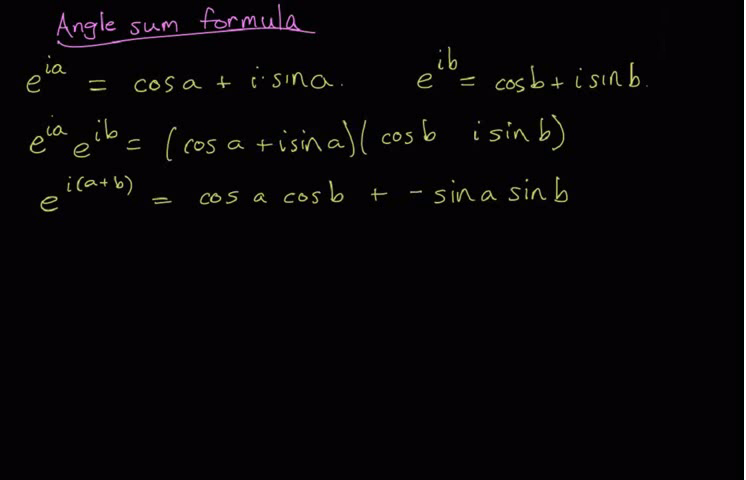 Angle sum formula
e^{ia} = cos a + i·sin a. e^{ib} = cos b + i sin b.
e^{ia} e^{ib} = (cos a + i sin a)(cos b i sin b)
e^{i(a+b)} = cos a cos b + - sin a sin b